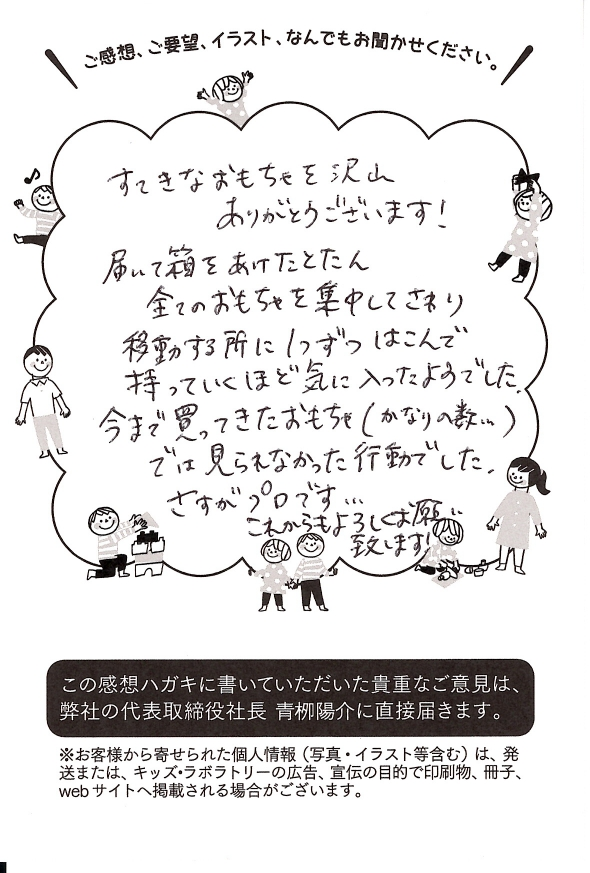 ご感想、ご要望、イラスト、なんでもお聞かせください。
すてきなおもちゃを沢山
ありがとうございます!
届いて箱をあけたとたん
全てのおもちゃを集中してさわり
移動する所に1つずつはこんで
持っていくほど気に入ったようでした。
今まで買ってきたおもちゃ(かなりの数…)
では見られなかった行動でした。
さすがプロです…
これからもよろしくお願い
致します!
この感想ハガキに書いていただいた貴重なご意見は、
弊社の代表取締役社長 青栁陽介に直接届きます。
※お客様から寄せられた個人情報(写真・イラスト等含む)は、発
送または、キッズ・ラボラトリーの広告、宣伝の目的で印刷物、冊子、
webサイトへ掲載される場合がございます。